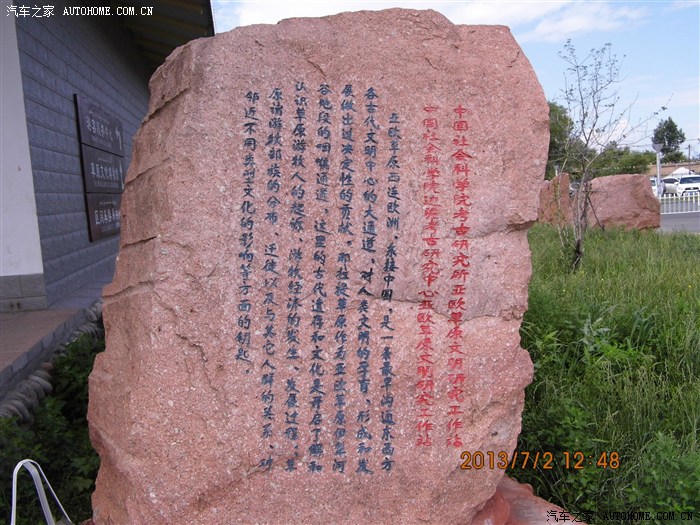 中国社会科学院考古研究所亚欧草原文明研究工作站
中国社会科学院边疆考古研究中心亚欧草原文明研究工作站
亚欧草原西连欧洲，东接中国，是一条最早沟通东西方
各古代文明中心的大通道，对人类文明的孕育、形成和发
展做出过决定性的贡献。那拉提草原作为亚欧草原伊犁河
谷地段的咽喉通道，这里的古代遗存和文化是开启了解和
认识草原游牧人的起源、游牧经济的发生、发展过程、草
原诸游牧部族的分布、迁徙以及与其它人群的关系、对
邻近不同类型文化的影响等方面的钥匙。
2013/7/2 12:48
汽车之家 AUTOHOME.COM.CN
汽车之家 AUTOHOME.COM.CN